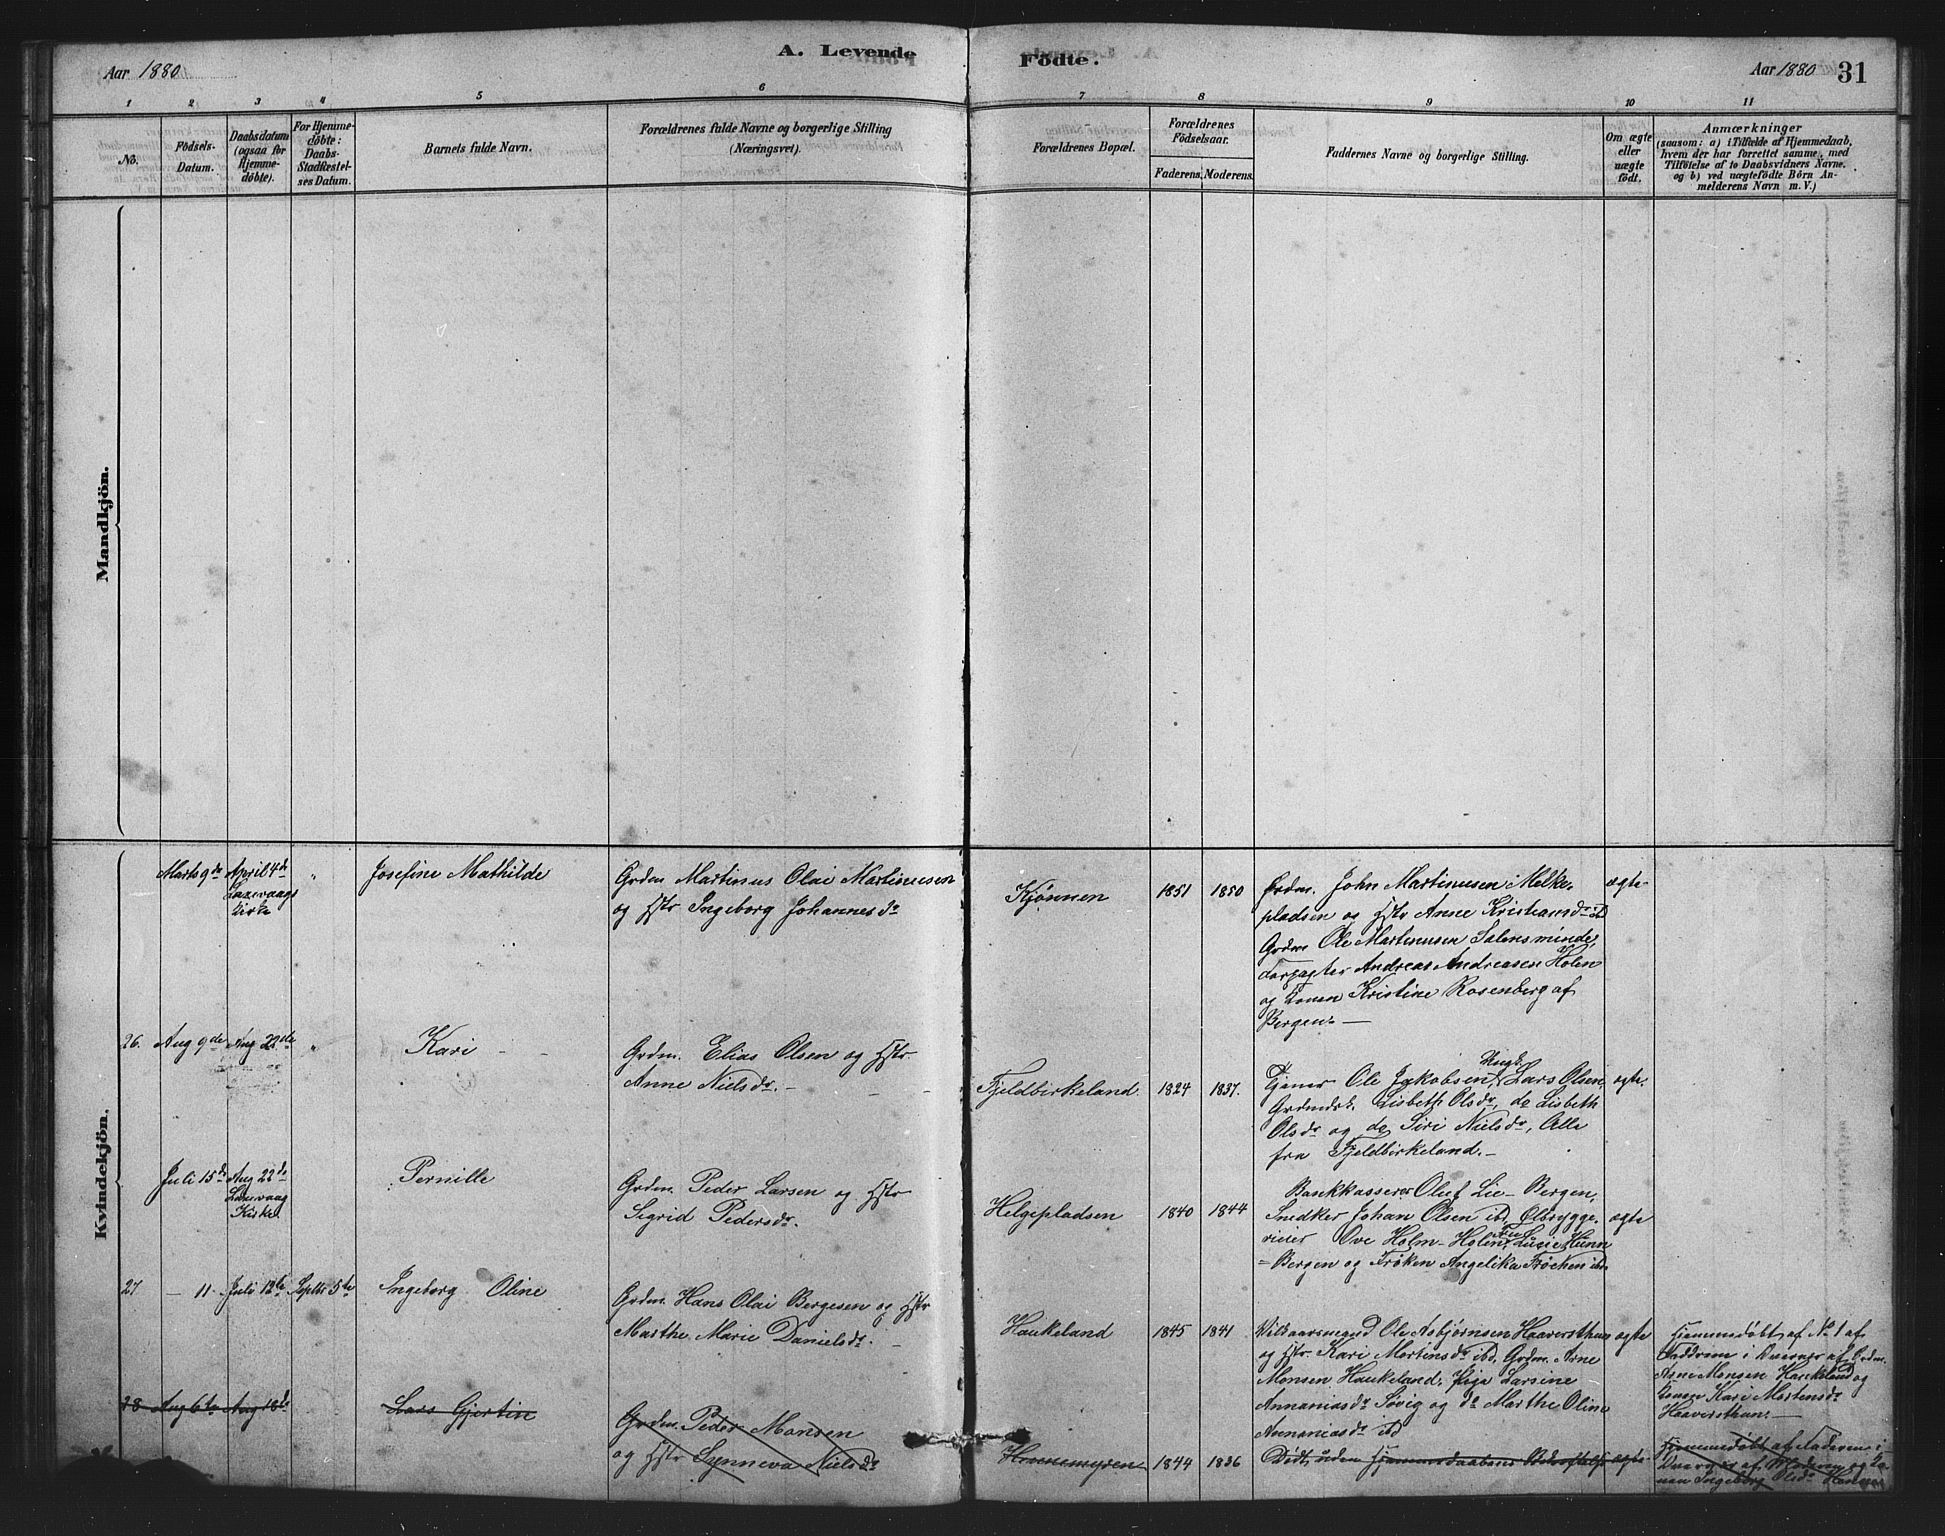 Aar 1880
A. Levende
Födte.
Aar 1880
31
1 2 3 4 5 6 7 8 9 10 11
No.
Födsels-
Datum.
Daabsdatum
(ogsaa for
Hjemme-
döbte).
For Hjemme-
döbte:
Daabs-
Stadfæstel-
ses Datum.
Barnets fulde Navn.
Forældrenes fulde Navne og borgerlige Stilling
(Næringsvei).
Forældrenes Bopæl.
Forældrenes
Födselsaar.
Faderens. Moderens.
Faddernes Navne og borgerlige Stilling.
Om ægte
eller
uægte
födt.
Anmærkninger
(saasom: a) i Tilfælde af Hjemmedaab,
hvem der har forrettet samme, med
Tilföielse af to Daabsvidners Navne.
og b) ved uægtefödte Börn An-
melderens Navn m. V.)
Mandkjön.
Kvindekjön.
Marts 9de
April 4de
Laxevaags
Kirke
"
Josefine Mathilde
Grdm. Martinus Olai Martinusen
og Hstr Ingeborg Johannesdr
Kjønnen
1851
1850
Grdm. John Martinusen Melke-
pladsen og Hstr Anne Kristiansdr ibd
Grdm Ole Martinusen Salensminde,
Forpagter Andreas Andreasen Holen
og Konen Kristine Rosenberg af
Bergen. —
ægte
26.
Aug 9de
Aug 22de
"
Kari
Grdm. Elias Olsen og Hstr
Anne Nielsdr. —
Fjeldbirkeland
1824
1837.
Ole Jakobsen, Ungk. Lars Olsen,
Lisbeth Olsdr, do Lisbeth
Olsdr og do Siri Nielsdr, Alle
fra Fjeldbirkeland. —
ægte.
Juli 15de
Aug 22de
Laxevaag
Kirke
Pernille
Grdm. Peder Larsen og Hstr
Sigrid Pedersdr.
Helgepladsen
1840
1844
Bankkasserer Oluf Lie - Bergen,
Snedker Johan Olsen ibd, Ølbrygge-
rieier Ove Holm - Holen, Lucie
- Bergen og Frøken Angelika ibd.
ægte
27
— 11.
Juli 18de
Septbr 5te
Ingeborg Oline
Grdm. Hans Olai Bergesen og Hstr
Marthe Marie Danielsdr.
Haukeland
1845
1841
Vilkaarsmand Ole Asbjørnsen Haaversthun
og Hstr. Kari Mortensdr ibd, Grdm. Arne
Monsen Haukeland, Pige Larsine
Annaniasdr Søvig og do Marthe Oline
Annaniasdr ibd
ægte
Hjemmedøbt af No 1 af
Faddrene i Overvær af Grdm.
Arne Monsen Haukeland og
Konen Kari Mortensdr
Haaversthun. —
28
Aug 6te
Aug 18de
Lars Gjertin
Grdm. Peder Monsen
og Hstr Synneva Nielsdr
1844
1836
Død uden Hjemmedaabens Bekræftelse
ægte
Hjemmedøbt af Faderen i
Overvær af Moderen og Ko-
nen Ingeborg Olsdr